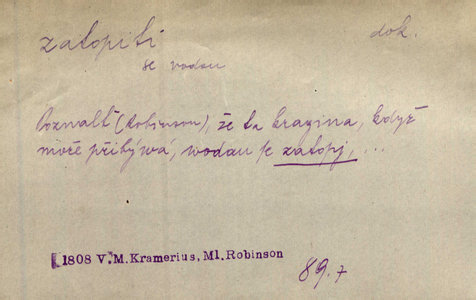 zatopiti dok.
se vodau
Poznalť (Robinson), že ta kragina, když
moře přibýwá, wodau se zatopj, ...
1808 V. M. Kramerius, Ml. Robinson
89.7